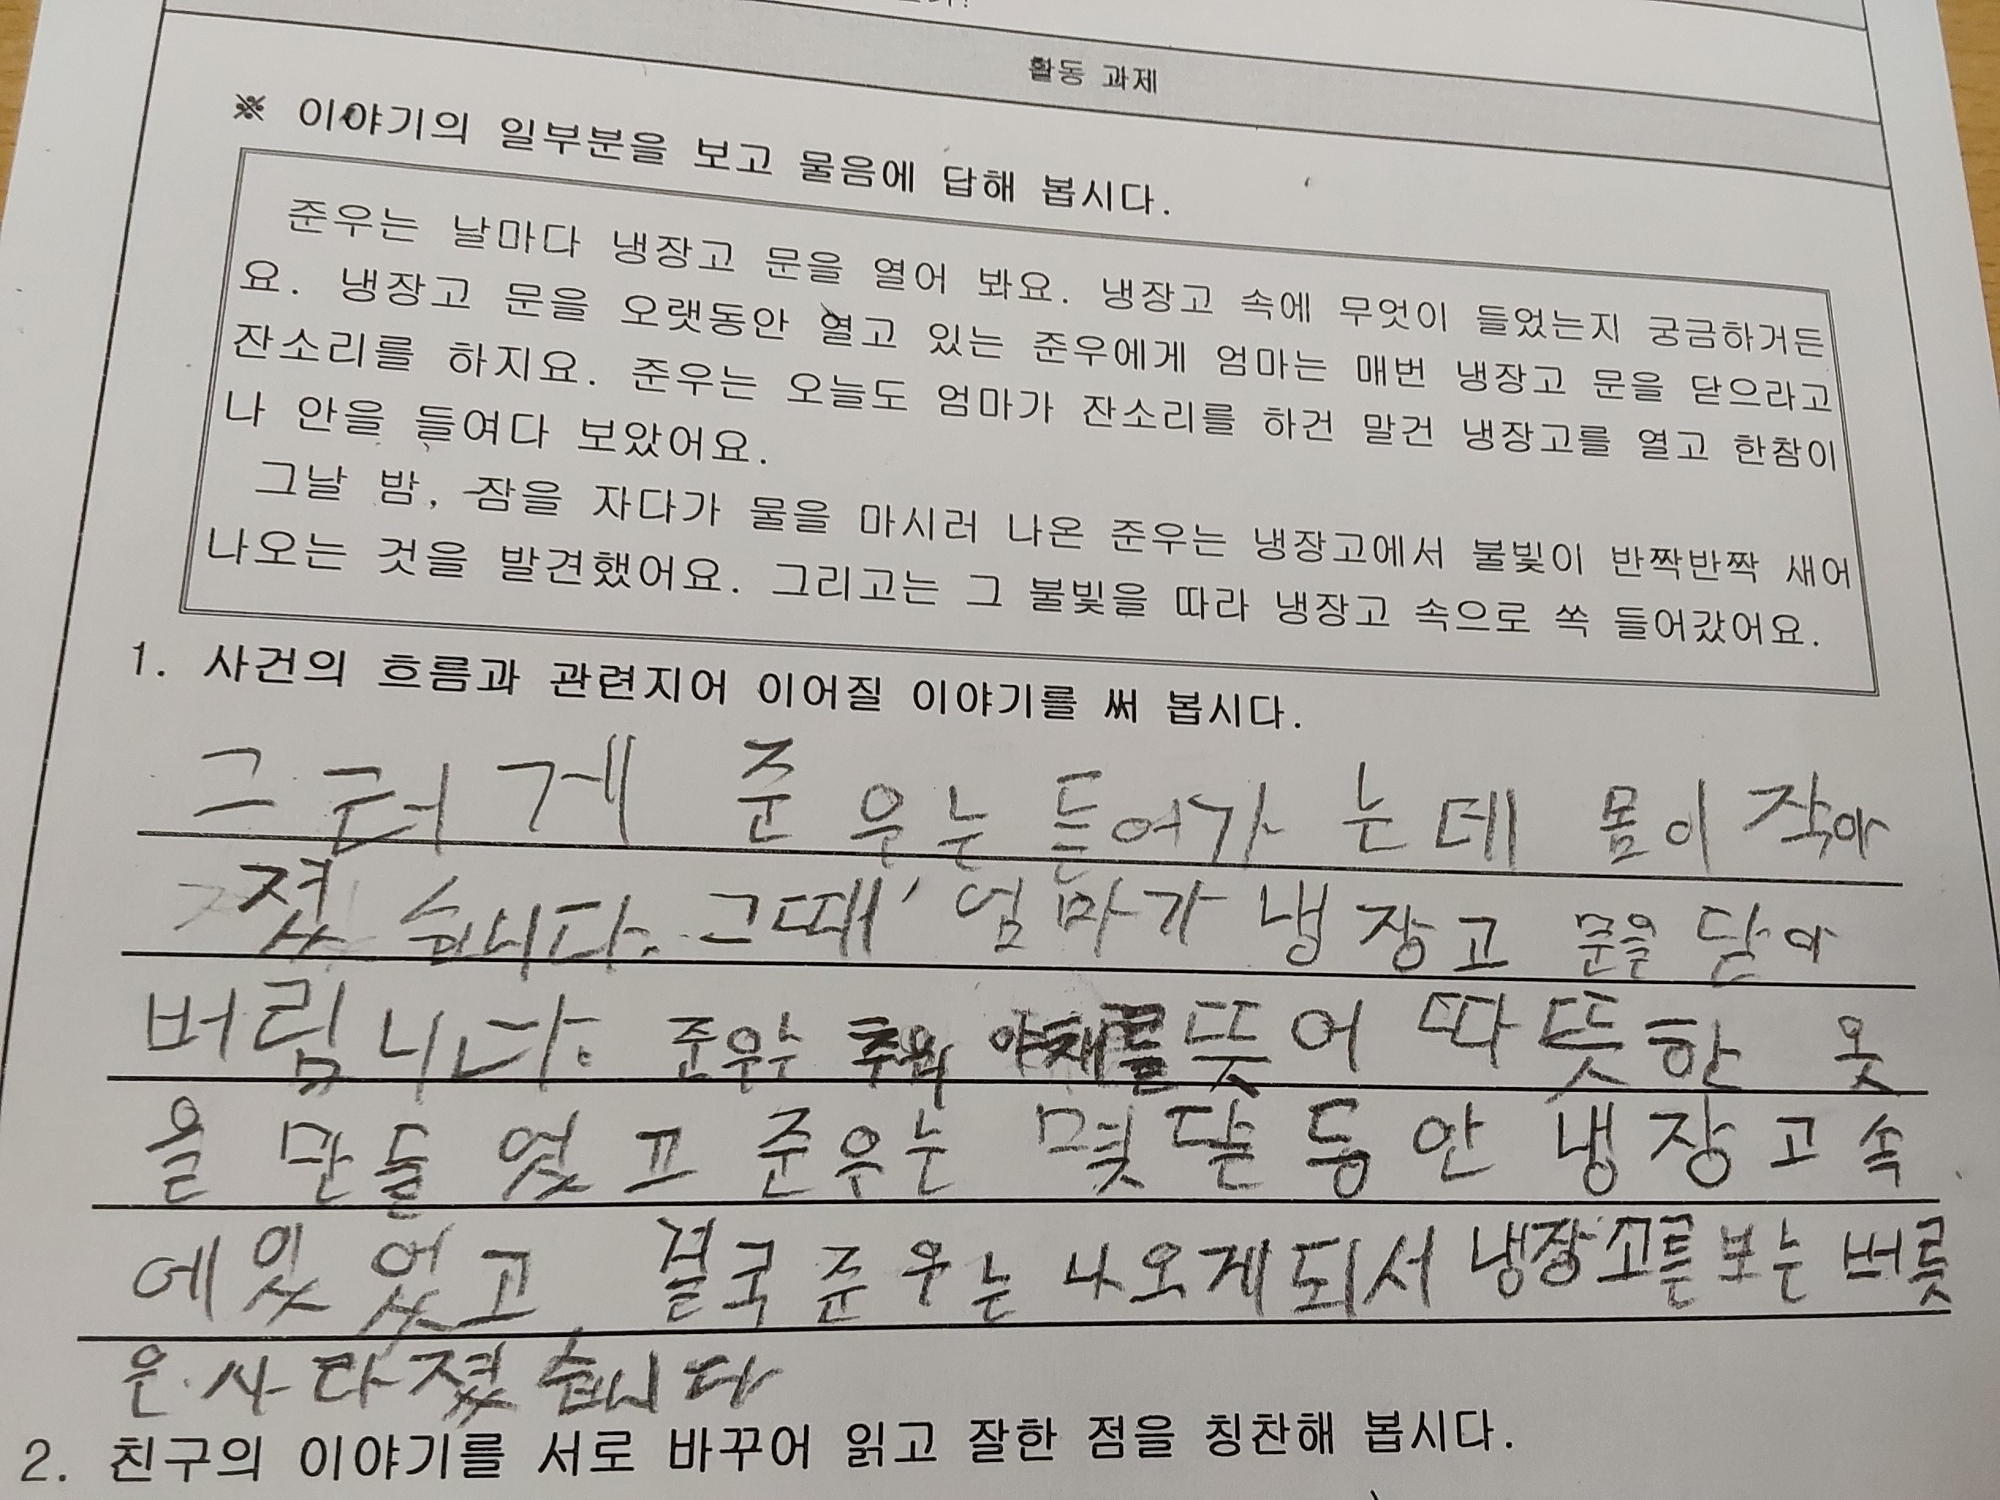 활동 과제
※ 이야기의 일부분을 보고 물음에 답해 봅시다.
준우는 날마다 냉장고 문을 열어 봐요. 냉장고 속에 무엇이 들었는지 궁금하거든
요. 냉장고 문을 오랫동안 열고 있는 준우에게 엄마는 매번 냉장고 문을 닫으라고
잔소리를 하지요. 준우는 오늘도 엄마가 잔소리를 하건 말건 냉장고를 열고 한참이
나 안을 들여다 보았어요.
그날 밤, 잠을 자다가 물을 마시러 나온 준우는 냉장고에서 불빛이 반짝반짝 새어
나오는 것을 발견했어요. 그리고는 그 불빛을 따라 냉장고 속으로 쏙 들어갔어요.
1. 사건의 흐름과 관련지어 이어질 이야기를 써 봅시다.
그러게 준우는 들어가는데 몸이 작아
졌습니다. 그때, 엄마가 냉장고 문을 닫아
버립니다. 준우는 야채를 뜻어 따뜻한 옷
을 만들었고 준우는 몇달동안 냉장고속
에있었고, 결국 준우는 나오게되서 냉장고를 보는 버릇
은 사라졌습니다
2. 친구의 이야기를 서로 바꾸어 읽고 잘한 점을 칭찬해 봅시다.